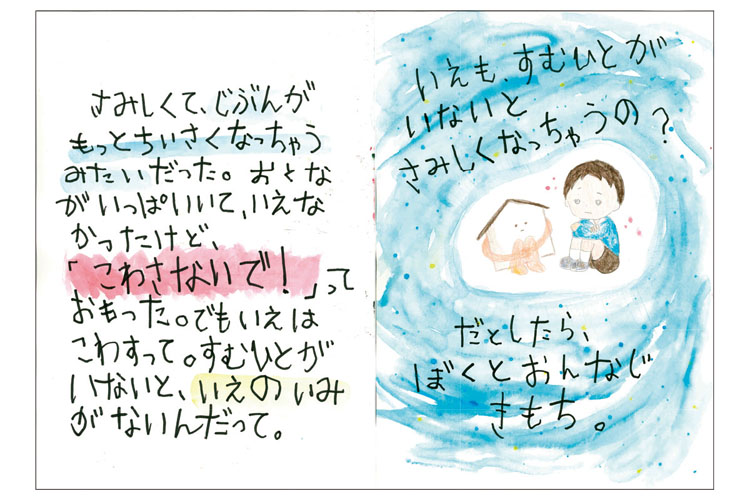 さみしくて、じぶんが
もっとちいさくなっちゃう
みたいだった。おとな
がいっぱいいて、いえな
かったけど、
「こわさないで！」って
おもった。でもいえは
こわすって。すむひとが
いないと、いえのいみ
がないんだって。
いえも、すむひとが
いないと
さみしくなっちゃうの？
だとしたら、
ぼくとおんなじ
きもち。